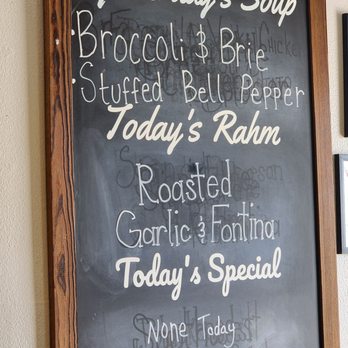 Today's Soup
·Broccoli & Brie
·Stuffed Bell Pepper
Today's Rahm
Roasted
Garlic & Fontina
Today's Special
None Today